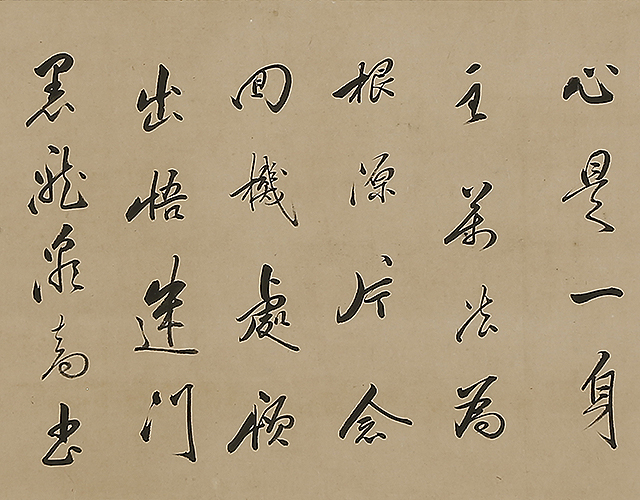 心是一身
主萬法為
根源片念
回機處頓
出悟迷門
黒龍泉高書